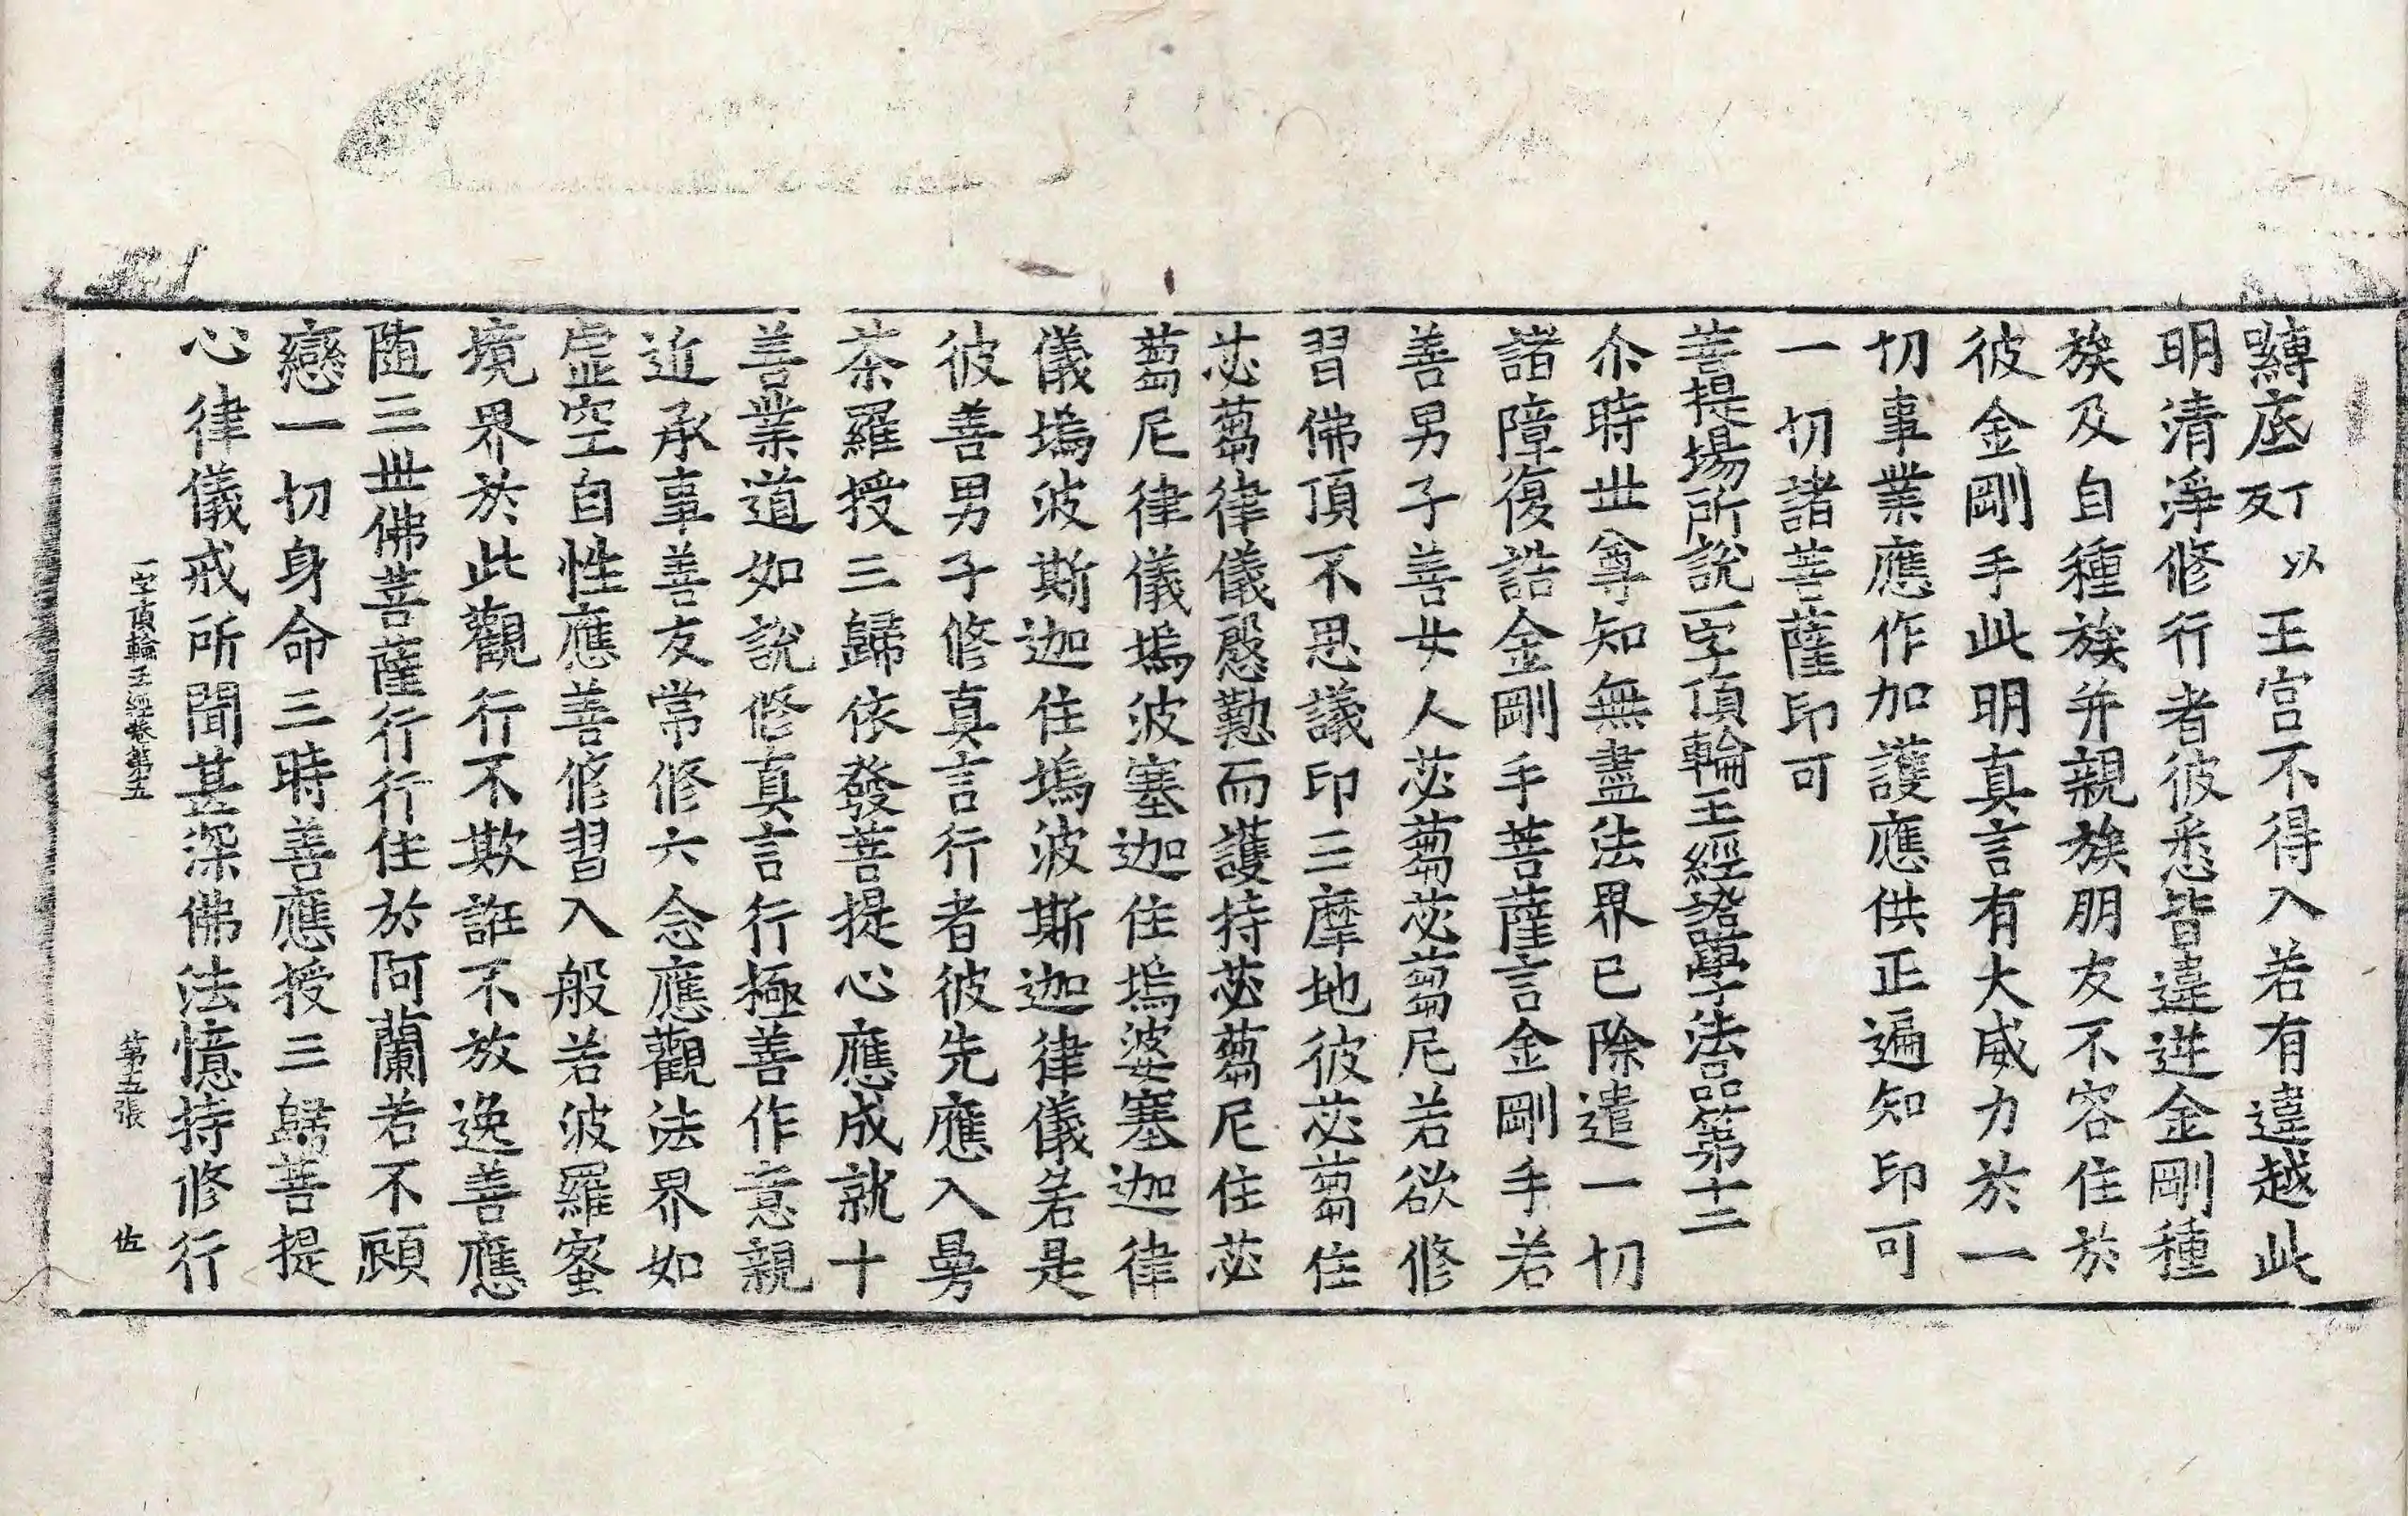 囀底丁以反王宮不得入若有違越此
明清淨修行者彼悉皆違逆金剛種
族及自種族并親族朋友不容住於
彼金剛手此明真言有大威力於一
切事業應作加護應供正遍知印可
一切諸菩薩印可
菩提場所說一字頂輪王經證學法品第十二
尒時世尊知無盡法界已除遣一切
諸障復誥金剛手菩薩言金剛手若
善男子善女人苾蒭苾蒭尼若欲修
習佛頂不思議印三摩地彼苾蒭住
苾蒭律儀慇懃而護持苾蒭尼住苾
蒭尼律儀塢波塞迦住塢婆塞迦律
儀塢波斯迦住塢波斯迦律儀若是
彼善男子修真言行者彼先應入曼
茶羅授三歸依發菩提心應成就十
善業道如說修真言行極善作意親
近承事善友常修六念應觀法界如
虛空自性應善修習入般若波羅蜜
境界於此觀行不欺誑不放逸善應
隨三世佛菩薩行行住於阿蘭若不顧
戀一切身命三時善應授三歸菩提
心律儀戒所聞甚深佛法憶持修行
一字頂輪王經卷第五 第五張 佐